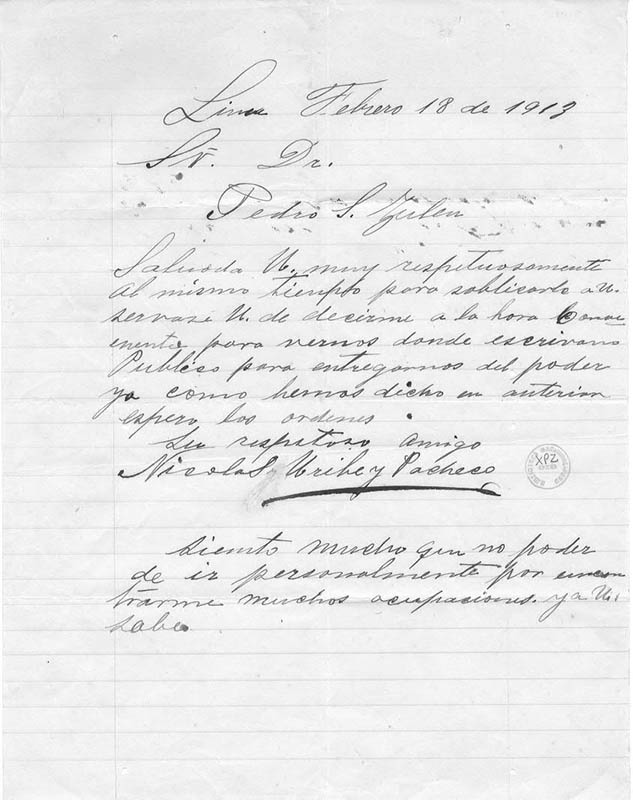 Lima Febrero 18 de 1913
Sr. Dr.
Pedro S. Zulen
Saluda a U. muy respetuosamente
al mismo tiempo para soblicarle a U.
servase U. de decirme a la hora Conve
niente para vernos donde escrivano
Publico para entregarnos del poder
ya como hemos dicho en anterior
espero los ordenes.
Su respetoso amigo
Nicolas Uribe y Pacheco
XPZ
siento mucho que no poder
de ir personalmente por encon
trarme muchos ocupaciones ya U.
sabe.